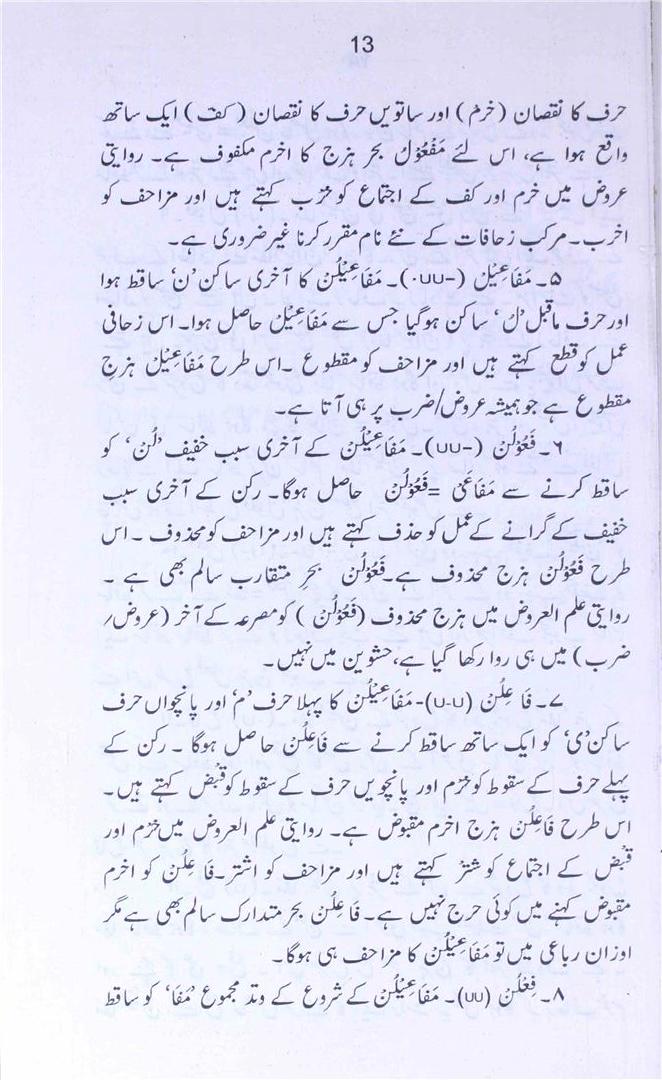 13
حرف کا نقصان (خرم) اور ساتویں حرف کا نقصان (کف) ایک ساتھ
واقع ہوا ہے، اس لئے مَفْعُوْلُ بحر ہزج کا اخرم مکفوف ہے۔ روایتی
عروض میں خرم اور کف کے اجتماع کو خَرْب کہتے ہیں اور مزاحف کو
اخرب۔ مرکب زحافات کے نئے نام مقرر کرنا غیر ضروری ہے۔
۵۔ مَفَاعِیْلْ (-۰۷۷)۔ مَفَاعِیْلُنْ کا آخری ساکن 'ن' ساقط ہوا
اور حرف ماقبل 'لُ' ساکن ہوگیا جس سے مَفَاعِیْلْ حاصل ہوا۔ اس زحافی
عمل کو قطع کہتے ہیں اور مزاحف کو مقطوع ۔اس طرح مَفَاعِیْلْ ہزج
مقطوع ہے جو ہمیشہ عروض/ضرب پر ہی آتا ہے۔
۶۔ فَعُوْلُنْ (-۷۷)۔ مَفَاعِیْلُنْ کے آخری سبب خفیف 'لُنْ' کو
ساقط کرنے سے مَفَاعَیْ =فَعُوْلُنْ حاصل ہوگا۔ رکن کے آخری سبب
خفیف کے گرانے کے عمل کو حذف کہتے ہیں اور مزاحف کو محذوف ۔ اس
طرح فَعُوْلُنْ ہزج محذوف ہے۔فَعُوْلُنْ بحرِ متقارب سالم بھی ہے ۔
روایتی علم العروض میں ہزج محذوف (فَعُوْلُنْ ) کو مصرعہ کے آخر (عروض/
ضرب) میں ہی روا رکھا گیا ہے، حشوین میں نہیں۔
۷۔ فَاعِلُنْ (۷-۷)۔ مَفَاعِیْلُنْ کا پہلا حرف 'م' اور پانچواں حرف
ساکن 'ی' کو ایک ساتھ ساقط کرنے سے فَاعِلُنْ حاصل ہوگا ۔ رکن کے
پہلے حرف کے سقوط کو خَرْم اور پانچویں حرف کے سقوط کو قَبْض کہتے ہیں۔
اس طرح فَاعِلُنْ ہزج اخرم مقبوض ہے۔ روایتی علم العروض میں خَرْم اور
قَبْض کے اجتماع کو شَتَرْ کہتے ہیں اور مزاحف کو اشتر۔فَاعِلُنْ کو اخرم
مقبوض کہنے میں کوئی حرج نہیں ہے۔ فَاعِلُنْ بحر متدارک سالم بھی ہے مگر
اوزان رباعی میں تو مَفَاعِیْلُنْ کا مزاحف ہی ہوگا۔
۸۔ فِعْلُنْ (۷۷)۔ مَفَاعِیْلُنْ کے شروع کے وتد مجموع 'مَفَا' کو ساقط